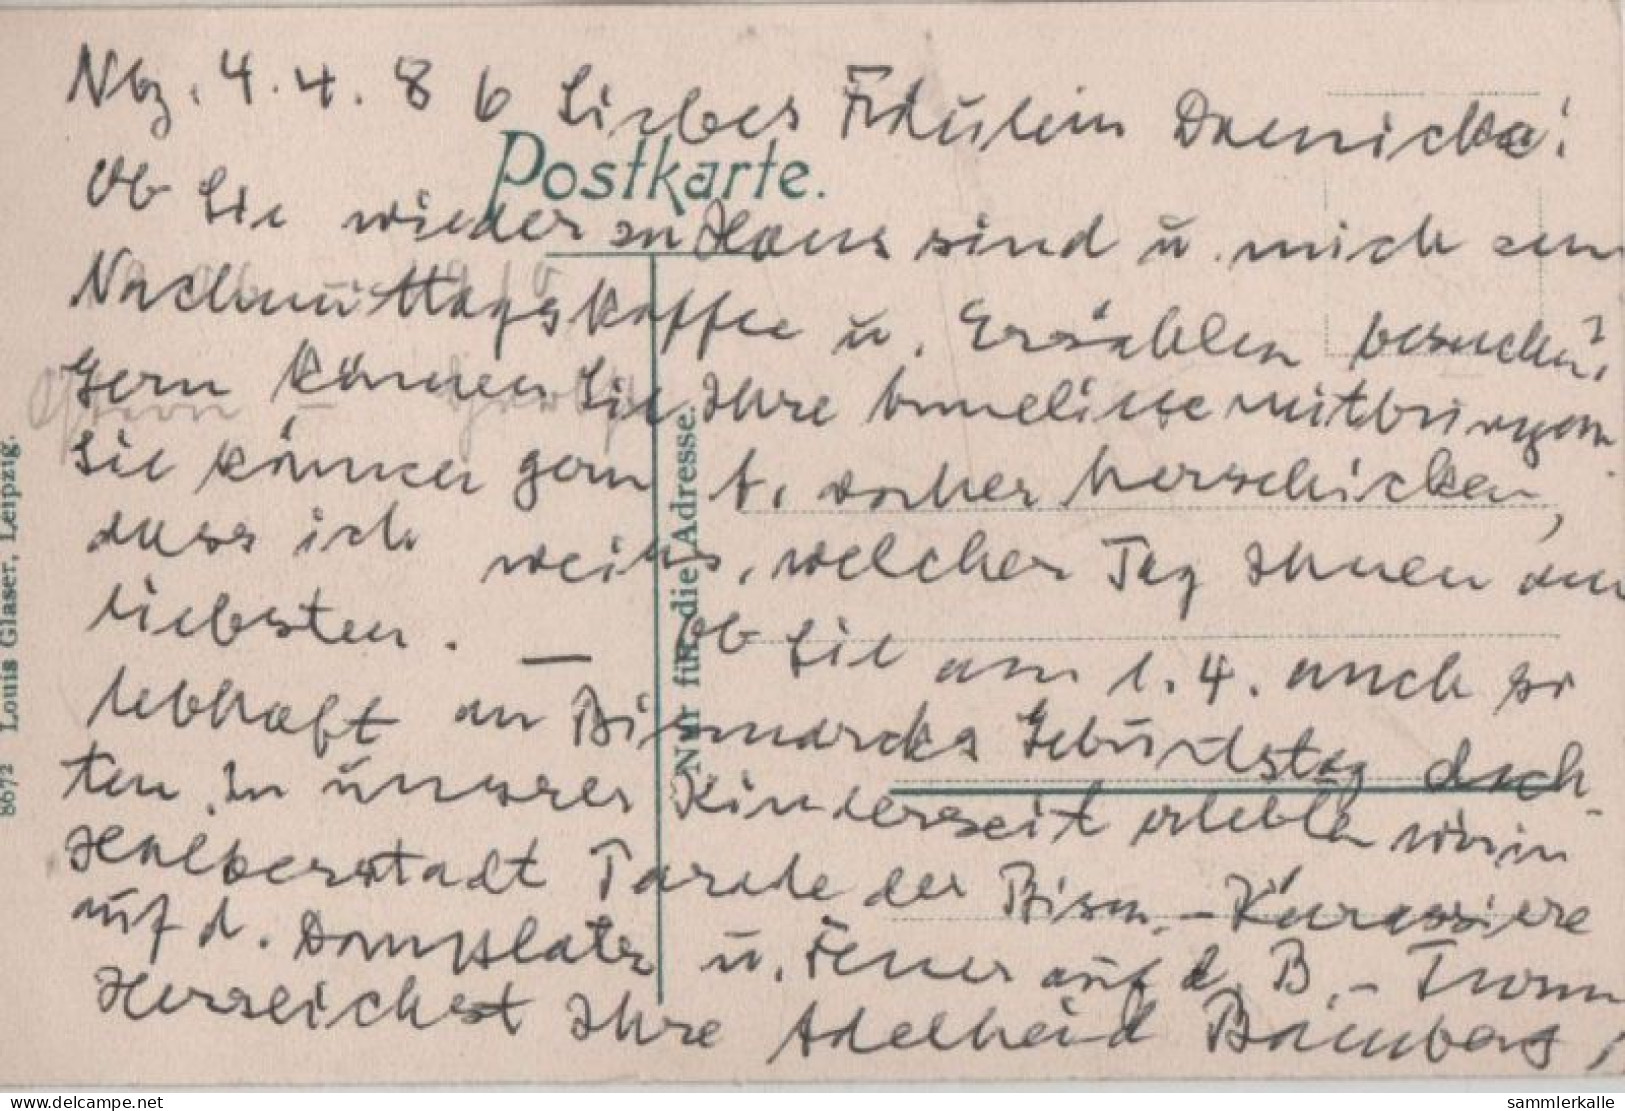 Nbg. 4.4.86 Liebes Fräulein Daenicke!
Postkarte.
Ob Sie wieder zu Haus sind u. mich zum
Nachmittagskaffee u. Erzählen besuchen?
Gern können Sie Ihre mitbringen.
Sie können gern vorher herschicken,
dass ich weiss, welcher Tag Ihnen am
liebsten. — Ob Sie am 1.4. auch so
lebhaft an Bismarcks Geburtstag dach-
ten. In unserer Kinderzeit erlebten wir in
Halberstadt Parade der Bism.-Kürassiere
auf d. Domplatz u. Feuer auf d. B.-Turm
Herzlichst Ihre Adelheid
Nur für die Adresse.
8672 Louis Glaser, Leipzig.
www.delcampe.net
sammlerkalle